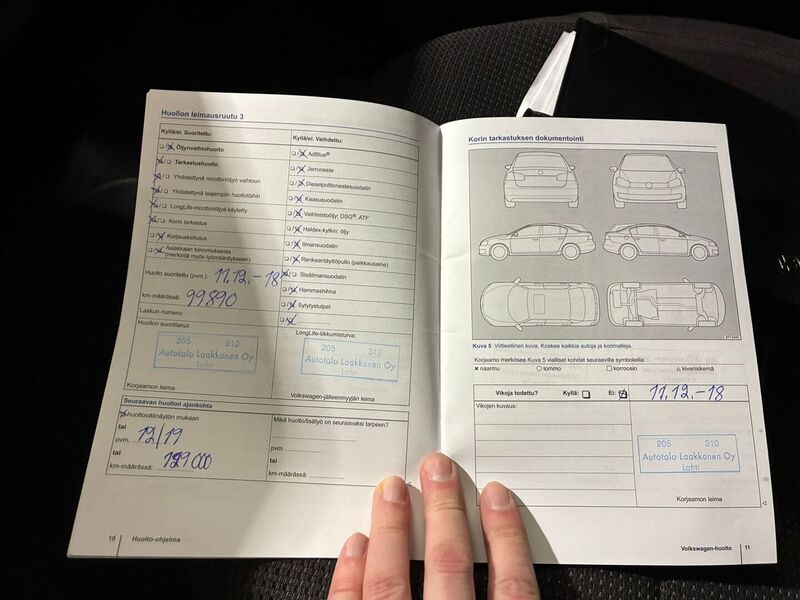 Huollon leimausruutu 3
Kyllä/ei. Suoritettu:
Öljynvaihtohuolto
Tarkastushuolto
Yhdistettynä moottoriöljyn vaihtoon
Yhdistettynä laajempiin huoltotöihin
LongLife-moottoriöljyä käytetty
Korin tarkastus
Korjauskehotus
Asiakkaan toivomuksesta
(merkintä myös työmääräykseen)
Huolto suoritettu (pvm.): 11.12.-18
km-määrässä: 99890
Laskun numero:
Huollon suorittanut:
205 310
Autotalo Laakkonen Oy
Lahti
Korjaamon leima
Kyllä/ei. Vaihdettu:
AdBlue®
Jarruneste
Dieselpolttonestesuodatin
Kaasusuodatin
Vaihteistoöljy: DSG®, ATF
Haldex-kytkin: öljy
Ilmansuodatin
Renkaantäyttöpullo (paikkausaine)
Sisäilmansuodatin
Hammashihna
Sytytystulpat
LongLife-liikkumisturva:
205 310
Autotalo Laakkonen Oy
Lahti
Volkswagen-jälleenmyyjän leima
Seuraavan huollon ajankohta
huoltovälinäytön mukaan
tai
pvm. 12/19
tai
km-määrässä: 129000
Mikä huolto/lisätyö on seuraavaksi tarpeen?
pvm.
tai
km-määrässä:
10 Huolto-ohjelma
Korin tarkastuksen dokumentointi
Kuva 5 Viitteellinen kuva. Koskee kaikkia autoja ja korimalleja.
Korjaamo merkitsee Kuva 5 vialliset kohdat seuraavilla symboleilla:
x naarmu lommo korroosio kiveniskemä
Vikoja todettu? Kyllä: Ei: 11.12.-18
Vikojen kuvaus:
205 310
Autotalo Laakkonen Oy
Lahti
Korjaamon leima
Volkswagen-huolto 11